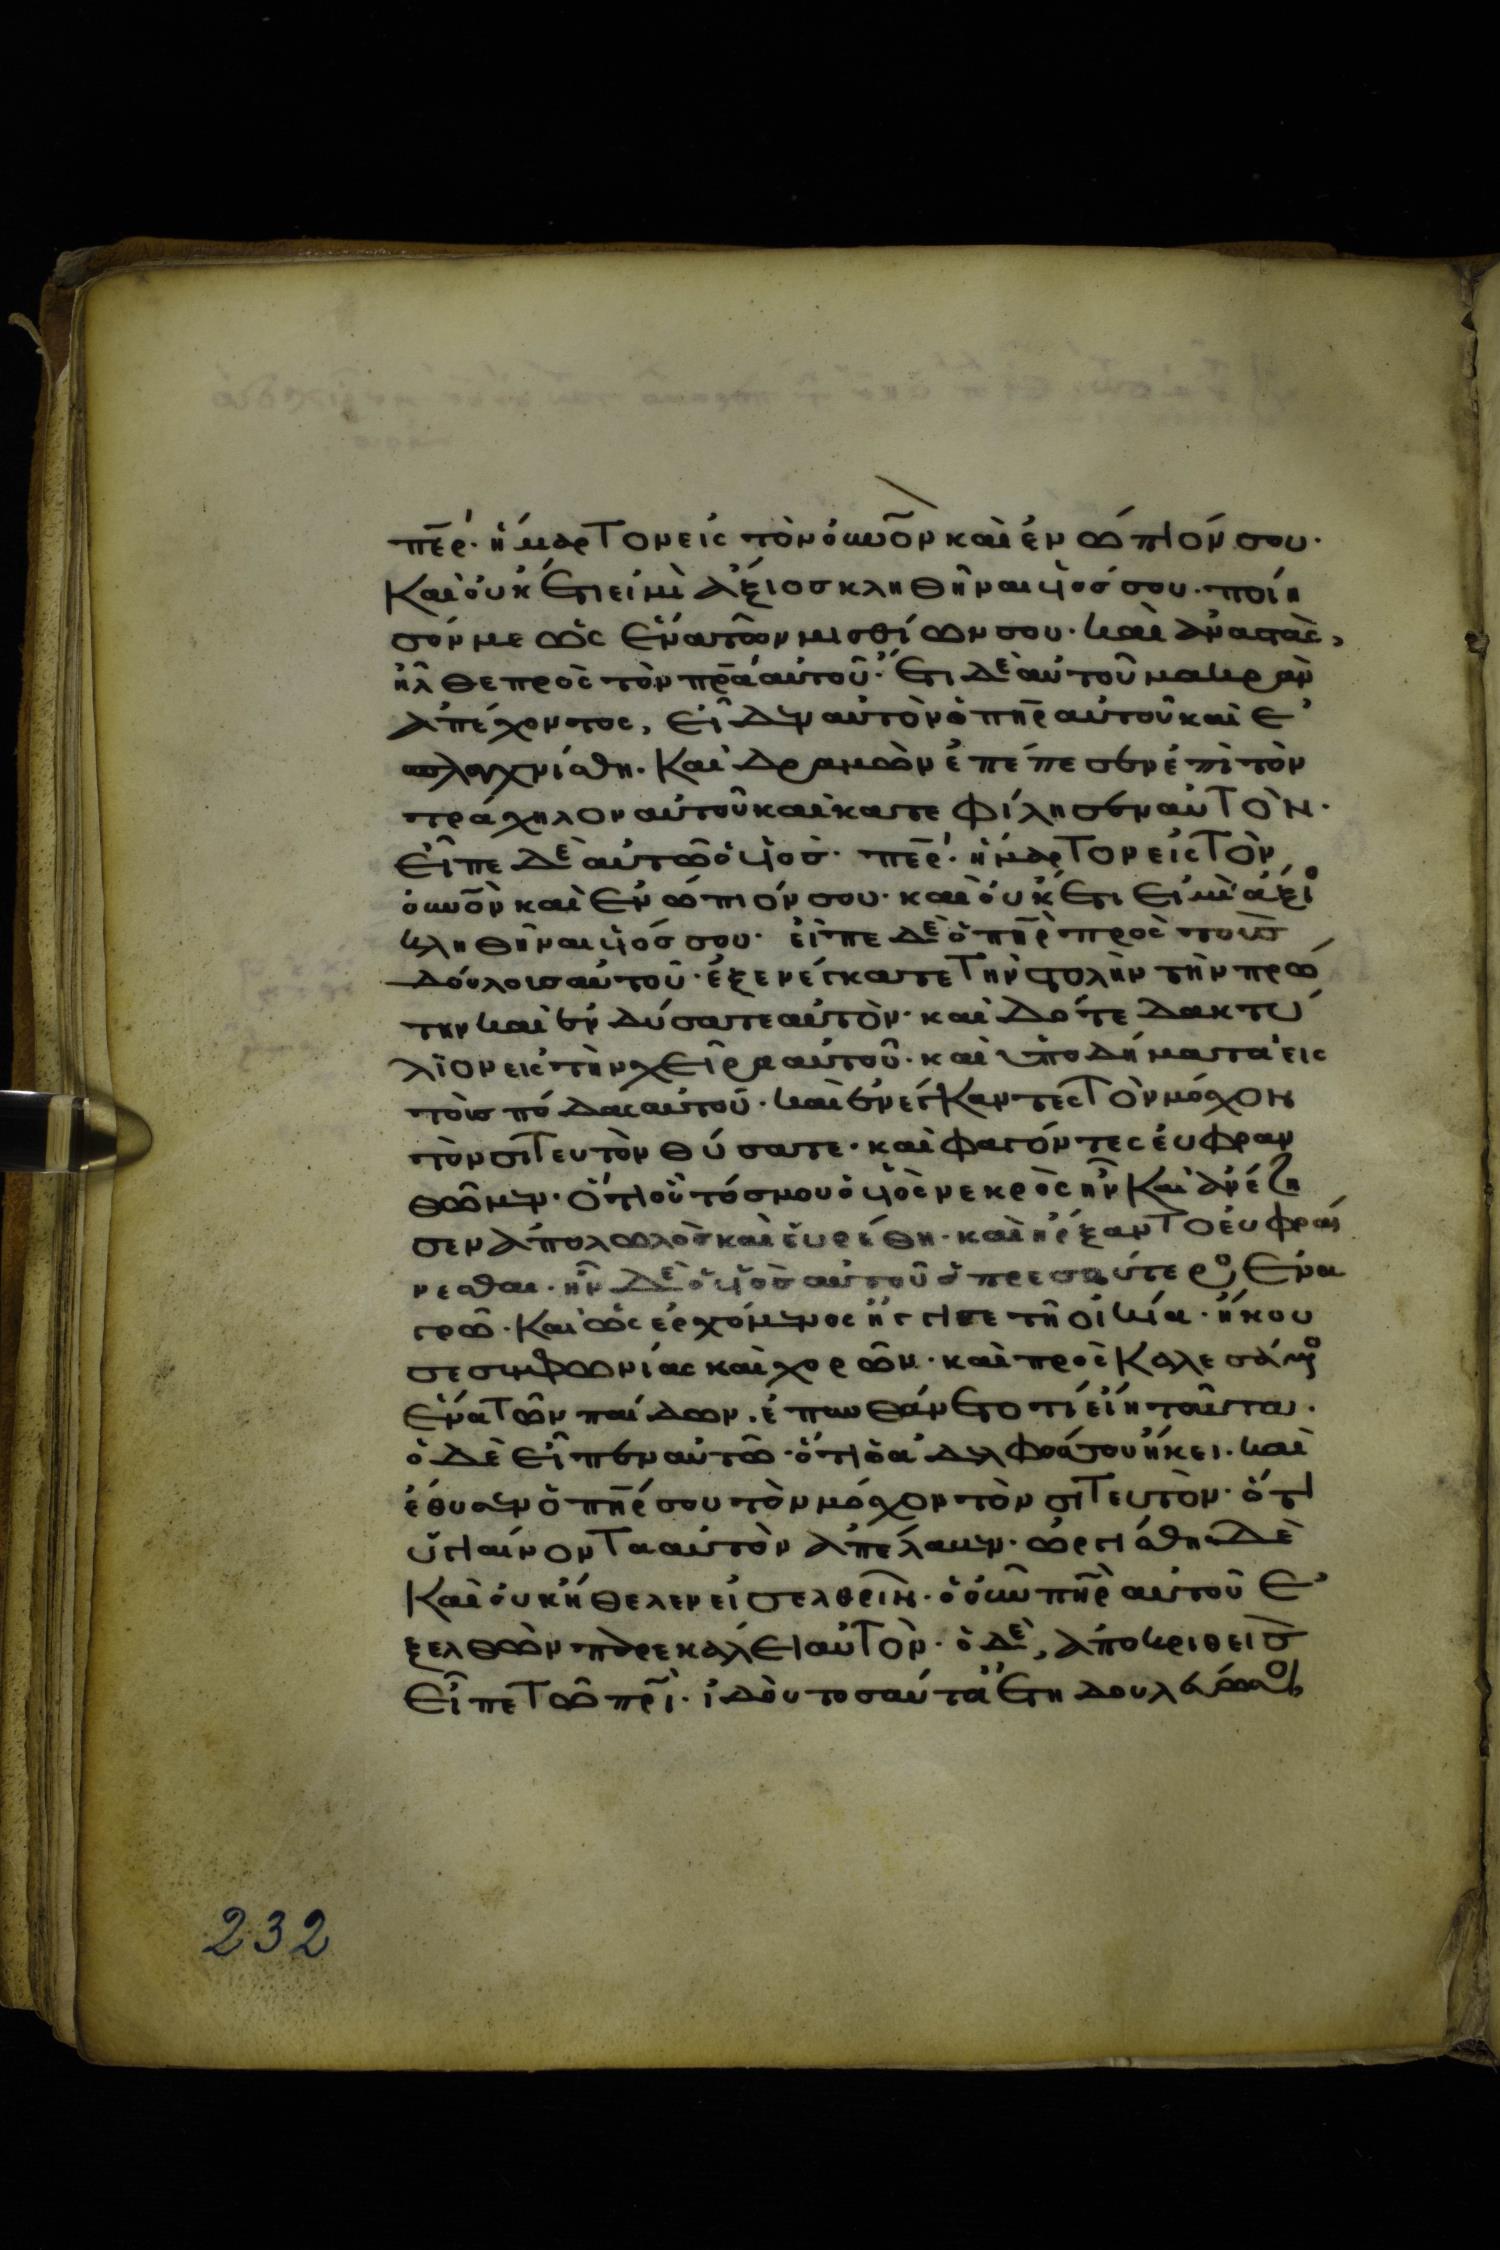 περ· ἥμαρτον εἰς τὸν οὐνον καὶ ἐνώπιόν σου·
καὶ οὐκέτι εἰμὶ ἄξιος κληθῆναι ὑιός σου· ποίη
σόν με ὡς ἕνα τῶν μισθίων σου· καὶ ἀναστὰς,
ἦλθε πρὸς τὸν πρα αὐτοῦ· ἔτι δὲ αὐτοῦ μακρὰν
ἀπέχοντος, εἶδεν αὐτὸν ὁ πηρ αὐτοῦ καὶ ἐ
σπλαγχνίσθη· καὶ δραμὼν ἐπέπεσεν ἐπὶ τὸν
τράχηλον αὐτοῦ καὶ κατεφίλησεν αὐτὸν·
εἶπε δὲ αὐτῶ ὁ ὑιὸς· περ· ἥμαρτον εἰς τὸν
οὐνον καὶ ἐνώπιόν σου· καὶ οὐκέτι εἰμὶ ἄξιο
κληθῆναι ὑιός σου· εἶπε δὲ ὁ πηρ πρὸς τοὺς
δούλους αὐτοῦ· ἐξενέγκατε τὴν στολὴν τὴν πρώ
την καὶ ἐνδύσατε αὐτὸν· καὶ δότε δακτύ
λιον εἰς τὴν χεῖρα αὐτοῦ· καὶ ὑποδήματα εἰς
τοὺς πόδας αὐτοῦ· καὶ ἐνέγκαντες τὸν μόσχον
τὸν σιτευτὸν θύσατε· καὶ φαγόντες εὐφραν
θῶμεν· ὅτι οὗτός μου ὁ ὑιὸς νεκρὸς ἦν καὶ ἀνέζη
σεν ἀπολωλὸς καὶ εὑρέθη· καὶ ἤρξαντο εὐφραί
νεσθαι· ἦν δὲ ὁ ὑιὸς αὐτοῦ ὁ πρεσβύτερο ἐν α
γρῶ· καὶ ὡς ἐρχόμενος ἤγγισε τῆ οἰκία· ἤκου
σε συμφωνίας καὶ χορῶν· καὶ προσκαλεσάμενο
ἕνα τῶν παίδων, ἐπυνθάνετο τί εἴη ταῦτα·
ὁ δὲ εἶπεν αὐτῶ· ὅτι ὁ ἀδελφός σου ἥκει· καὶ
ἔθυσεν ὁ πηρ σου τὸν μόσχον τὸν σιτευτὸν· ὅτι
ὑγιαίνοντα αὐτὸν ἀπέλαβεν· ὠργίσθη δὲ
καὶ οὐκ ἤθελεν εἰσελθεῖν· ὁ οὖν πηρ αὐτοῦ ἐ
ξελθὼν παρεκάλει αὐτὸν· ὁ δὲ, ἀποκριθεὶς
εἶπε τῶ πρι· ἰδοὺ τοσαῦτα ἔτη δουλεύω σοι,
232